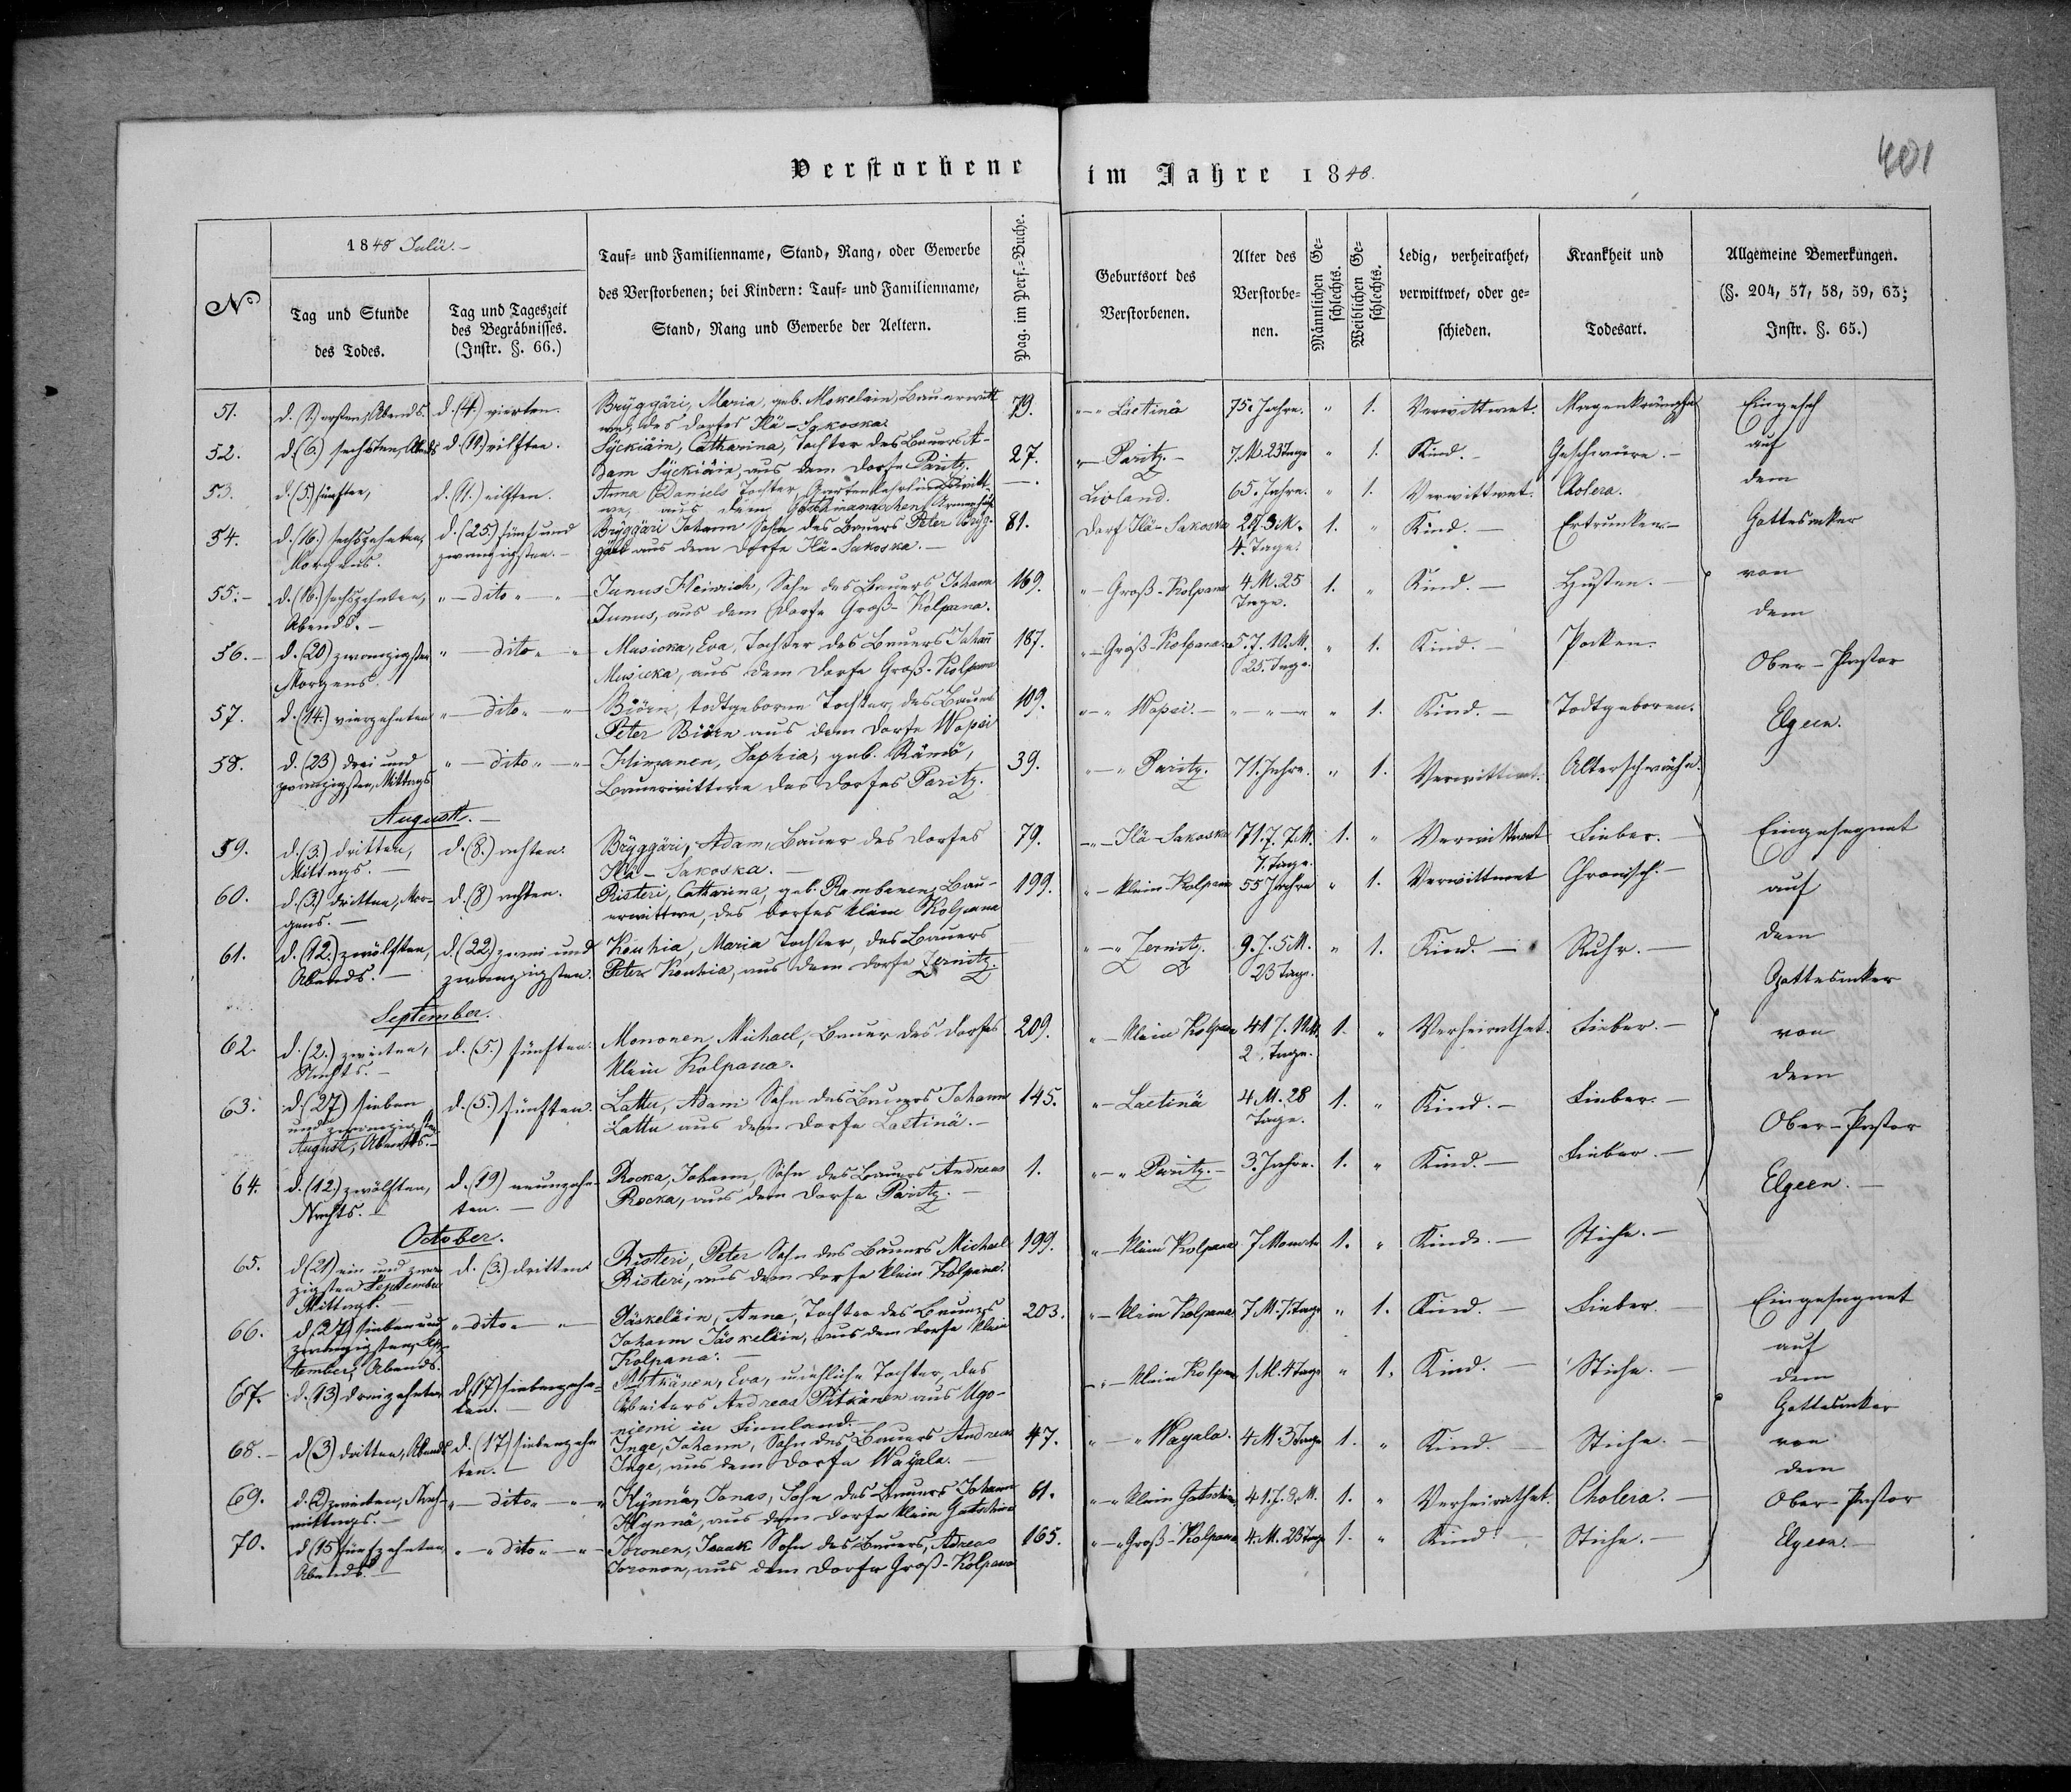 401
Verstorbene im Jahre 1848.
No
1848 Julii.-
Tag und Stunde
des Todes.
Tag und Tageszeit
des Begräbnisses.
(Instr. §. 66.)
Tauf- und Familienname, Stand, Rang, oder Gewerbe
des Verstorbenen; bei Kindern: Tauf- und Familienname,
Stand, Rang und Gewerbe der Aeltern.
Pag. im Pers.-Buche.
Geburtsort des
Verstorbenen.
Alter des
Verstorbe-
nen.
Männlichen Ge-
schlechts.
Weiblichen Ge-
schlechts.
Ledig, verheirathet,
verwittwet, oder ge-
schieden.
Krankheit und
Todesart.
Allgemeine Bemerkungen.
(§. 204, 57, 58, 59, 63;
Instr. §. 65.)
51. d. (1.) ersten, Abends. d. (4.) vierten. Bryggäri, Maria, geb. Mokelain, Bauerwitt 79. "-" Laetinä 75. Jahre. " 1. Verwittwet. Magenkrämpfe
we, des Dorfes Ilä-Sakoska.
52. d. (6.) sechsten, Abends d. (11.) eilften. Syckiäin, Catharina, Tochter des Bauers A- 27. "- Paritz.- 7. M. 23 Tage " 1. Kind.- Geschwüre.-
dam Syckiäin, aus dem Dorfe Paritz.
53. d. (5.) fünften, d. (11.) eilften. Anna Daniels Tochter, -. Livland. 65. Jahre. " 1. Verwittwet. Cholera.
we, aus dem
54. d. (16.) sechszehnten, d. (25.) fünf und Bryggäri Johann Sohn des Bauers Peter Bryg- 81. Dorf Ilä-Sakoska 2 J. 3 M. 1. " Kind.- Ertrunken.-
Morgens. zwanzigsten.- gäri aus dem Dorfe Ilä-Sakoska.- 4. Tage.
55.- d. (16.) sechszehnten, "-dito-"- Junus Heinrich, Sohn des Bauers Johann 169. "-Groß-Kolpana 4. M. 25 1. " Kind.- Husten.-
Abends.- Junus, aus dem Dorfe Groß-Kolpana. Tage.
56.- d. (20) zwanzigsten "-dito-"- Musicka, Eva, Tochter des Bauers Johan 187. "-Groß-Kolpana. 5. J. 10. M. " 1. Kind.- Pocken.
Morgens. Musicka, aus dem Dorfe Groß-Kolpana 25. Tage.
57. d. (14.) vierzehnten "-dito-"- Biörn, todtgeborne Tochter des Bauers 109. "-" Wopsi.- "-"-" " 1. Kind.- Todtgeboren.
Peter Biörn aus dem Dorfe Wopsi
58. d. (23) drei und "-dito-"- Himanen, Sophia, geb. Rämö, 39. "-" Paritz. 71. Jahre. " 1. Verwittwet. Altersschwäche.
zwanzigsten, Mittags Bauerwittwe des Dorfes Paritz.
Eingeseg
auf
dem
Gottesacker
von
dem
Ober-Pastor
Elgeen.
August.-
59. d. (3.) dritten, d. (8.) achten. Bryggäri, Adam, Bauer des Dorfes 79. "-Ilä-Sakoska 71. J. 7 M. 1. " Verwittwet Fieber.-
Mittags.- Ilä-Sakoska.- 7. Tage.
60. d. (3.) dritten, Mor- d. (8) achten. Risteri, Catharina, geb. Rambanen, Bau- 199. "-klein-Kolpana 55 Jahre " 1. Verwittwet Chronisch.-
gens.- erwittwe, des Dorfes klein Kolpana
61. d. (12.) zwölften, d. (22) zwei und Kouhia, Maria Tochter, des Bauers "-" Zernitz. 9. J. 5 M. " 1. Kind.- Ruhr.-
Abends.- zwanzigsten. Peter Kouhia, aus dem Dorfe Zernitz. 23 Tage.
September.
62. d. (2.) zweiten, d. (5.) fünften. Mononen Michael, Bauer des Dorfes 209. "-klein Kolpana 41 J. 11 M. 1. " Verheirathet. Fieber.-
Nachts.- klein Kolpana. 2. Tage.
63. d. (27) sieben d. (5.) fünften. Lattu, Adam Sohn des Bauers Johann 145. "-Laetinä 4 M. 28 1. " Kind.- Fieber.-
und zwanzigsten Lattu aus dem Dorfe Laetinä.- Tage.
August, Abends.-
64. d. (12.) zwölften, d. (19) neunzehn- Rocka, Johann, Sohn des Bauers Andreas 1. "-" Paritz.- 3. Jahre. 1. " Kind.- Fieber.-
Nachts.- ten.- Rocka, aus dem Dorfe Paritz.-
Eingesegnet
auf
dem
Gottesacker
von
dem
Ober-Pastor
Elgeen.-
October.
65. d (21) ein und zwan d. (3.) dritten. Risteri, Peter Sohn des Bauers Michael 199. "-klein Kolpana 7 Monate 1. " Kind.- Stiche.-
zigsten September Risteri, aus dem Dorfe klein Kolpana.
Mittags.-
66. d (27) sieben und "-dito-"- Jäskeläin, Anna, Tochter des Bauers 203. "-klein Kolpana 7. M. 7. Tage " 1. Kind.- Fieber.-
zwanzigsten, Sep- Johann Jäskeläin, aus dem Dorfe klein
tember, Abends. Kolpana.-
67. d. (13) dreizehnten d (17) siebenzehn- Pitkänen, Eva, uneheliche Tochter, des "-klein Kolpana 1 M. 4 Tage " 1. Kind.- Stiche.-
ten.- Arbeiters Andreas Pitkänen aus Ugo-
niemi in Finnland.-
68.- d (3) dritten, Abends d. (17) siebenzehn Inge, Johann, Sohn des Bauers Andreas 47. "-" Wayala. 4 M. 3 Tage 1. " Kind.- Stiche.-
ten.- Inge, aus dem Dorfe Wayala.-
69. d. (2) zweiten, Nach- "-dito-"- Hynnä, Jonas, Sohn des Bauers Johann 61. "-" klein Gatschina 41. J. 8. M. 1. " Verheirathet. Cholera.-
mittags.- Hynnä, aus dem Dorfe klein Gatschina
70. d (15 fünfzehnten, "-"dito-"- Toronen, Isaak Sohn des Bauers, Adreas 165. "-"Groß-Kolpana 4. M. 23 Tage 1. " Kind- Stiche.-
Abends.- Toronen, aus dem Dorfe Groß-Kolpana
Eingesegnet
auf
dem
Gottesacker
von
dem
Ober-Pastor
Elgeen.-